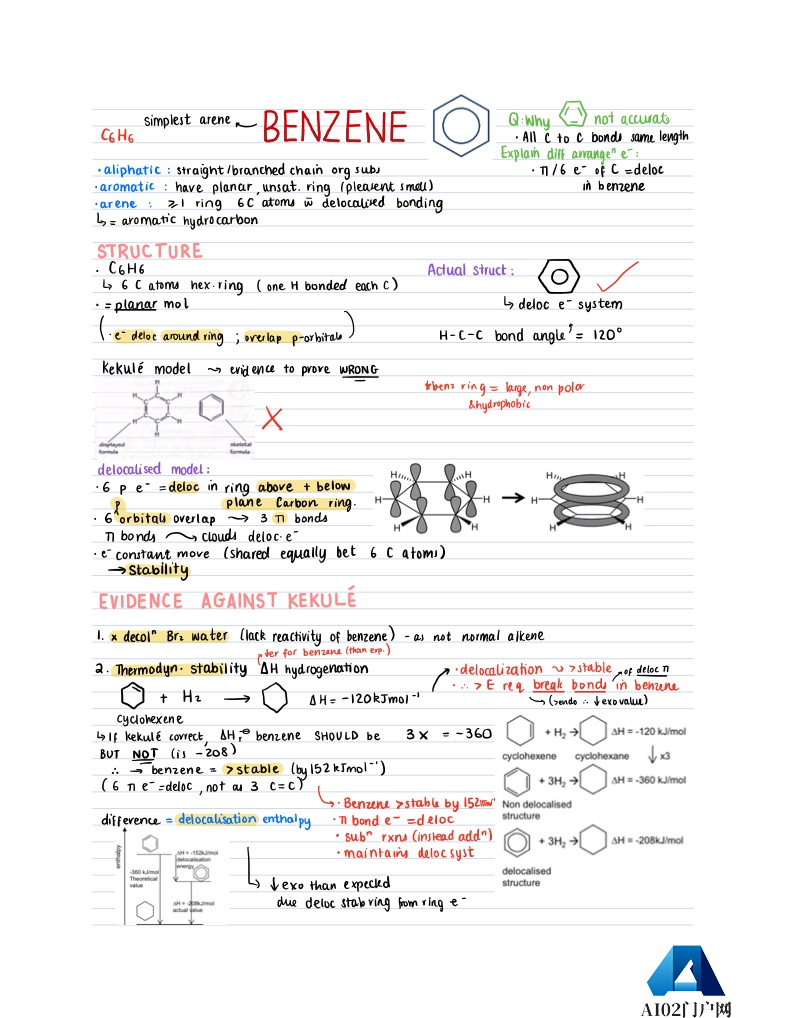 simplest arene
BENZENE
C6H6
Q: Why not accurate
· All C to C bonds same length
Explain diff arrangeⁿ e⁻:
· π/6 e⁻ of C = deloc
in benzene
· aliphatic : straight/branched chain org subs
· aromatic : have planar, unsat. ring (pleasent smell)
· arene : ≥1 ring 6C atoms w̄ delocalised bonding
↳ = aromatic hydrocarbon
STRUCTURE
· C6H6
↳ 6 C atoms hex. ring (one H bonded each C)
· = planar mol
(· e⁻ deloc around ring ; overlap p-orbitals)
Actual struct:
↳ deloc e⁻ system
H-C-C bond angle = 120°
Kekulé model ⤳ evidence to prove WRONG
*benz ring = large, non polar
&hydrophobic
H
H
H
H
H
H
C
C
C
C
C
C
displayed
formula
skeletal
formula
X
delocalised model:
· 6 p e⁻ = deloc in ring above + below
plane Carbon ring.
· 6 p orbitals overlap → 3 π bonds
π bonds → clouds deloc. e⁻
· e⁻ constant move (shared equally bet 6 C atoms)
→ Stability
H
H
H
H
H
H
H
H
H
H
H
H
EVIDENCE AGAINST KEKULÉ
1. x decolⁿ Br₂ water (lack reactivity of benzene) - as not normal alkene
↱ ↓er for benzene (than exp.)
2. Thermodyn. stability ΔH hydrogenation
+ H₂ → ΔH = -120kJmol⁻¹
cyclohexene
· delocalization ⤳ >stable
of deloc π
· ∴ >E req break bonds in benzene
↳ (>endo ∴ ↓exo value)
↳ If kekulé correct, ΔHᵣ⦵ benzene SHOULD be 3x = -360
BUT NOT (is -208)
∴ → benzene = >stable (by 152kJmol⁻¹)
(6 π e⁻ = deloc, not as 3 C=C)
· Benzene >stable by 152kJmol⁻¹
· π bond e⁻ = deloc
· subⁿ rxns (instead addⁿ)
· maintains deloc syst
difference = delocalisation enthalpy
enthalpy
-360 kJ/mol
Theoretical
value
ΔH = -152kJ/mol
delocalisation
energy
ΔH = -208kJ/mol
actual value
↳ ↓ exo than expected
due deloc stab ring from ring e⁻
+ H₂ → ΔH = -120 kJ/mol
cyclohexene cyclohexane ↓ x3
+ 3H₂ → ΔH = -360 kJ/mol
Non delocalised
structure
+ 3H₂ → ΔH = -208kJ/mol
delocalised
structure
AI02门户网